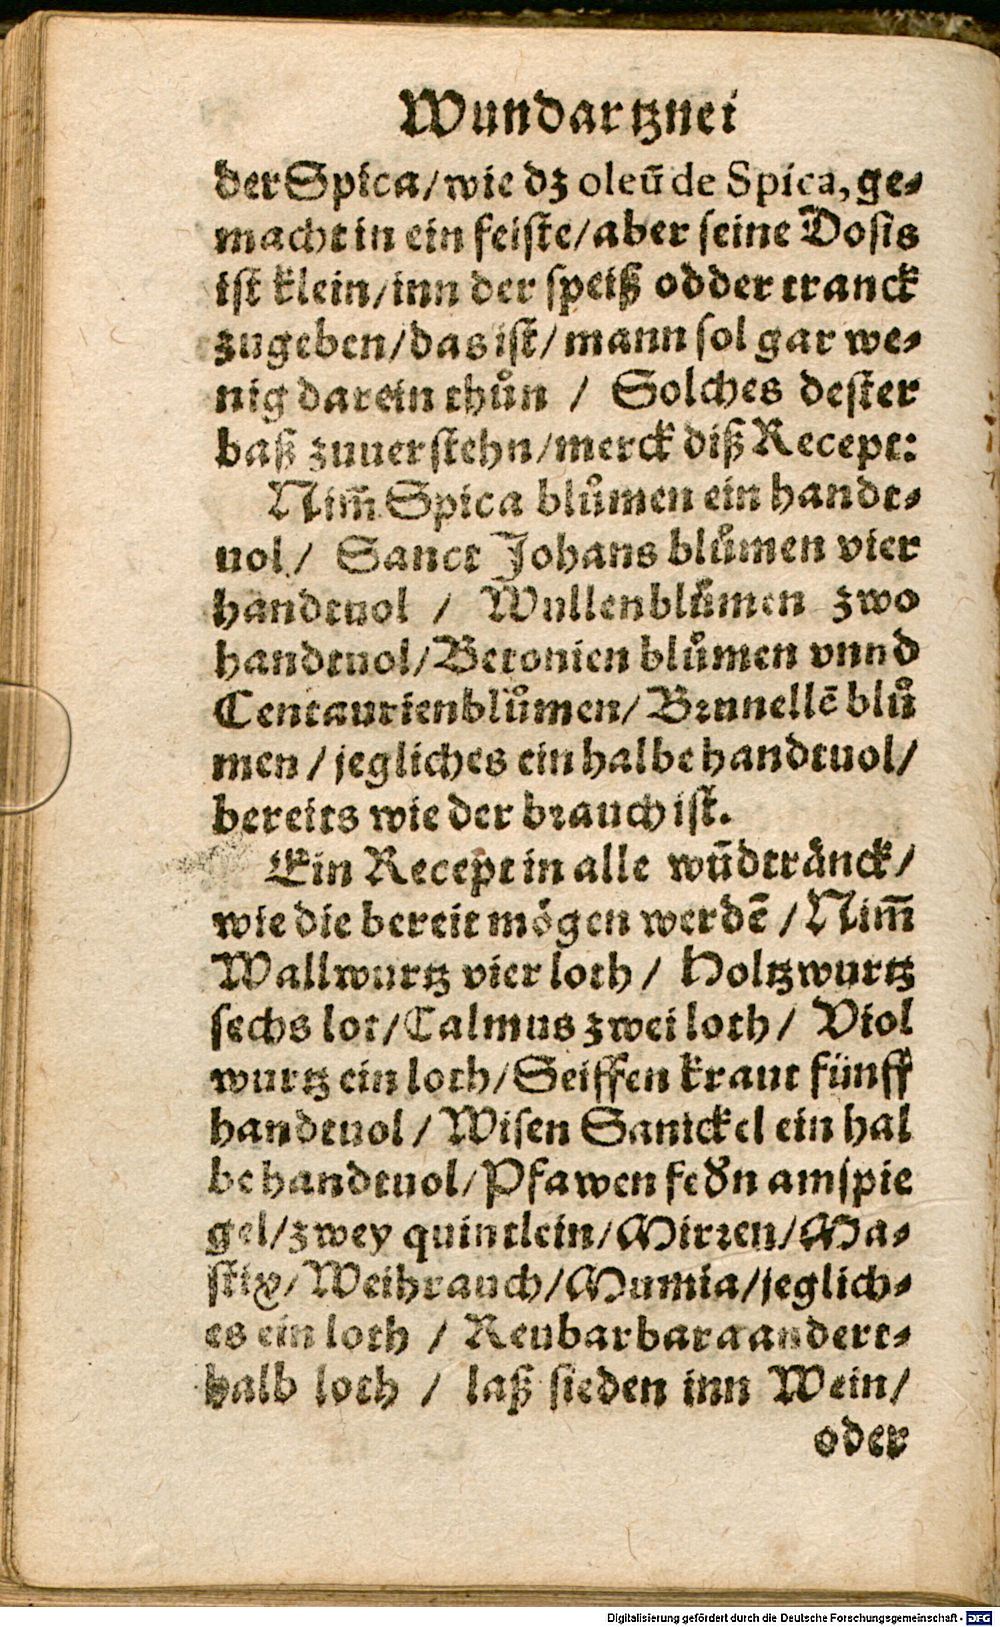 Wundartznei
der Spica/wie dz oleũ de Spica, ge⸗
macht in ein feiste/aber seine Dosis
ist klein/inn der speiß odder tranck
zugeben/das ist/mann sol gar we⸗
nig darein thůn / Solches dester
baß zuuerstehn/merck diß Recept:
Nim̃ Spica blůmen ein handt⸗
uol/ Sanct Johans blůmen vier
handtuol / Wullenblůmen zwo
handtuol/Betonien blůmen vnnd
Centaurienblůmen/Brunellẽ blů
men/jegliches ein halbe handtuol/
bereits wie der brauch ist.
Ein Recept in alle wũdtränck/
wie die bereit mögen werdẽ/Nim̃
Wallwurtz vier loth/ Holtzwurtz
sechs lot/Calmus zwei loth/ Viol
wurtz ein loth/Seiffen kraut fünff
handtuol/Wisen Sanickel ein hal
be handtuol/Pfawen fedn am spie
gel/zwey quintlein/Mirren/Ma⸗
stix/Weihrauch/Mumia/jeglich⸗
es ein loth / Reubarbara andert⸗
halb loth / laß sieden inn Wein/
oder
Digitalisierung gefördert durch die Deutsche Forschungsgemeinschaft - DFG